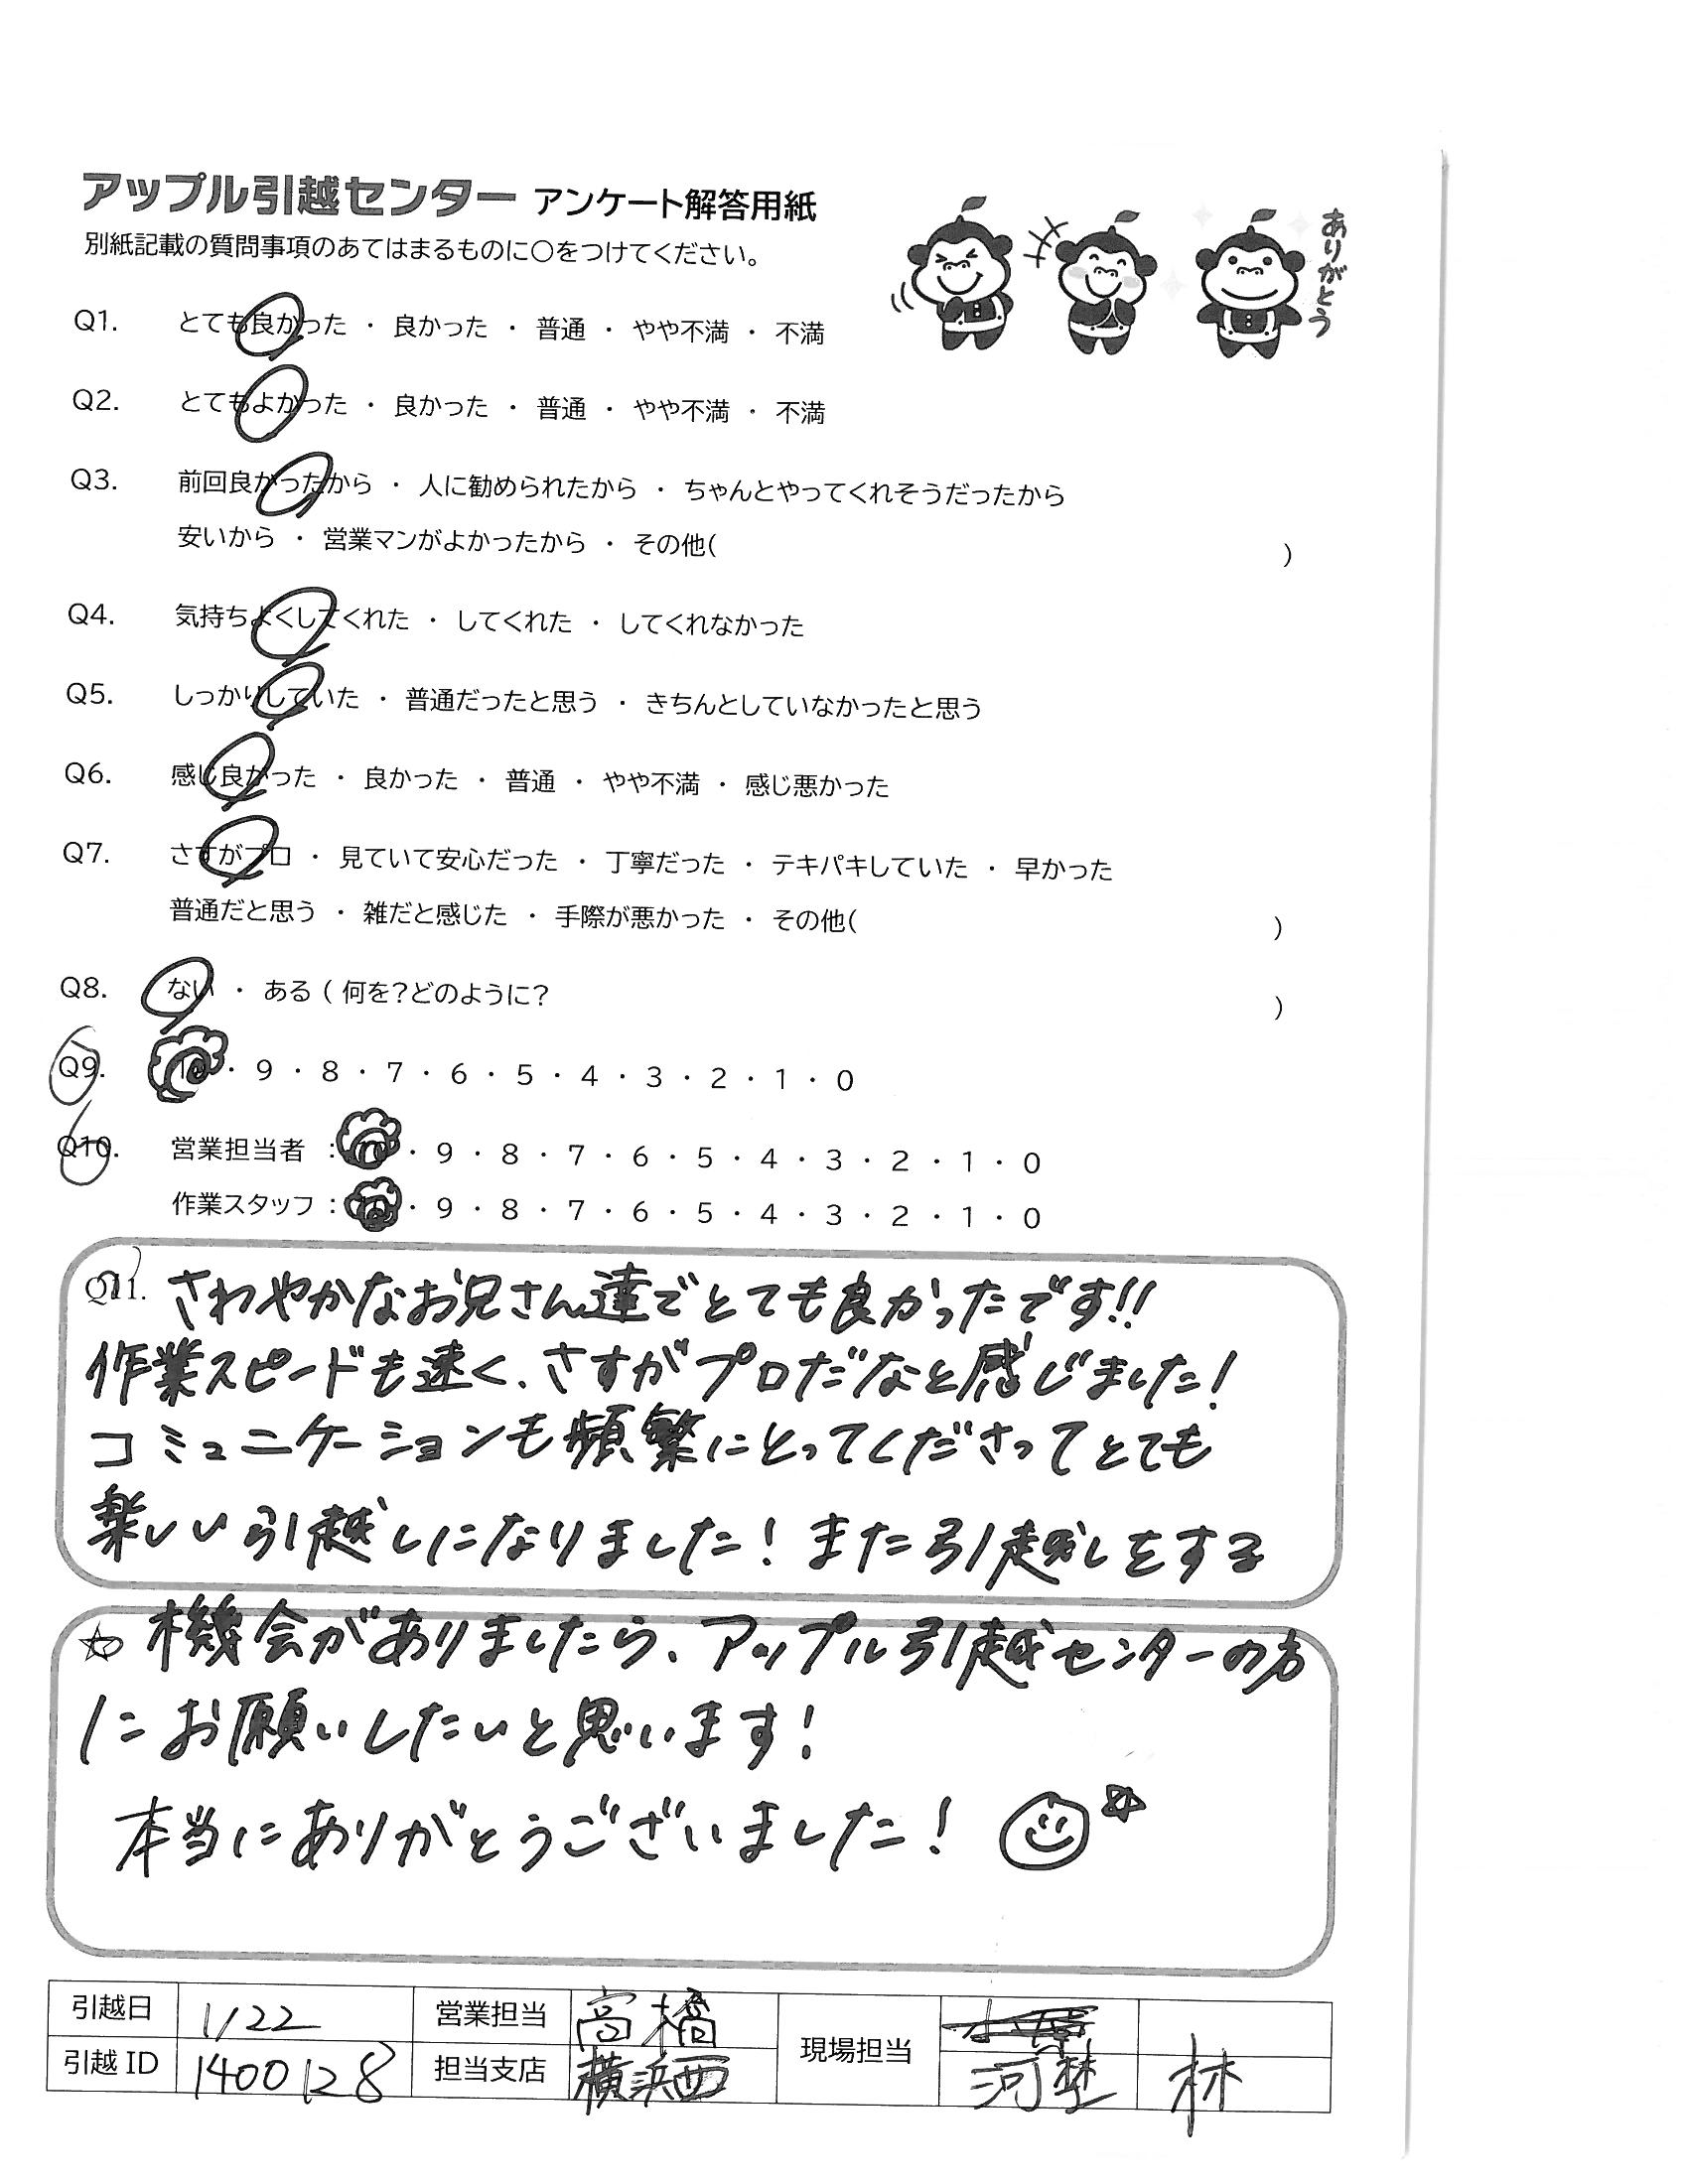 アップル引越センター アンケート解答用紙
別紙記載の質問事項のあてはまるものに○をつけてください。
ありがとう
Q1. とても良かった ・ 良かった ・ 普通 ・ やや不満 ・ 不満
Q2. とてもよかった ・ 良かった ・ 普通 ・ やや不満 ・ 不満
Q3. 前回良かったから ・ 人に勧められたから ・ ちゃんとやってくれそうだったから
安いから ・ 営業マンがよかったから ・ その他( )
Q4. 気持ちよくしてくれた ・ してくれた ・ してくれなかった
Q5. しっかりしていた ・ 普通だったと思う ・ きちんとしていなかったと思う
Q6. 感じ良かった ・ 良かった ・ 普通 ・ やや不満 ・ 感じ悪かった
Q7. さすがプロ ・ 見ていて安心だった ・ 丁寧だった ・ テキパキしていた ・ 早かった
普通だと思う ・ 雑だと感じた ・ 手際が悪かった ・ その他( )
Q8. ない ・ ある ( 何を?どのように? )
Q9. 10 ・ 9 ・ 8 ・ 7 ・ 6 ・ 5 ・ 4 ・ 3 ・ 2 ・ 1 ・ 0
Q10. 営業担当者 : 10 ・ 9 ・ 8 ・ 7 ・ 6 ・ 5 ・ 4 ・ 3 ・ 2 ・ 1 ・ 0
作業スタッフ : 10 ・ 9 ・ 8 ・ 7 ・ 6 ・ 5 ・ 4 ・ 3 ・ 2 ・ 1 ・ 0
Q11. さわやかなお兄さん達でとても良かったです!!
作業スピードも速く、さすがプロだなと感じました!
コミュニケーションも頻繁にとってくださってとても
楽しい引越しになりました! また引越しをする
☆ 機会がありましたら、アップル引越センターの方
にお願いしたいと思います!
本当にありがとうございました!
引越日 1/22 営業担当 高橋 現場担当
引越 ID 1400128 担当支店 横浜西 河埜 林